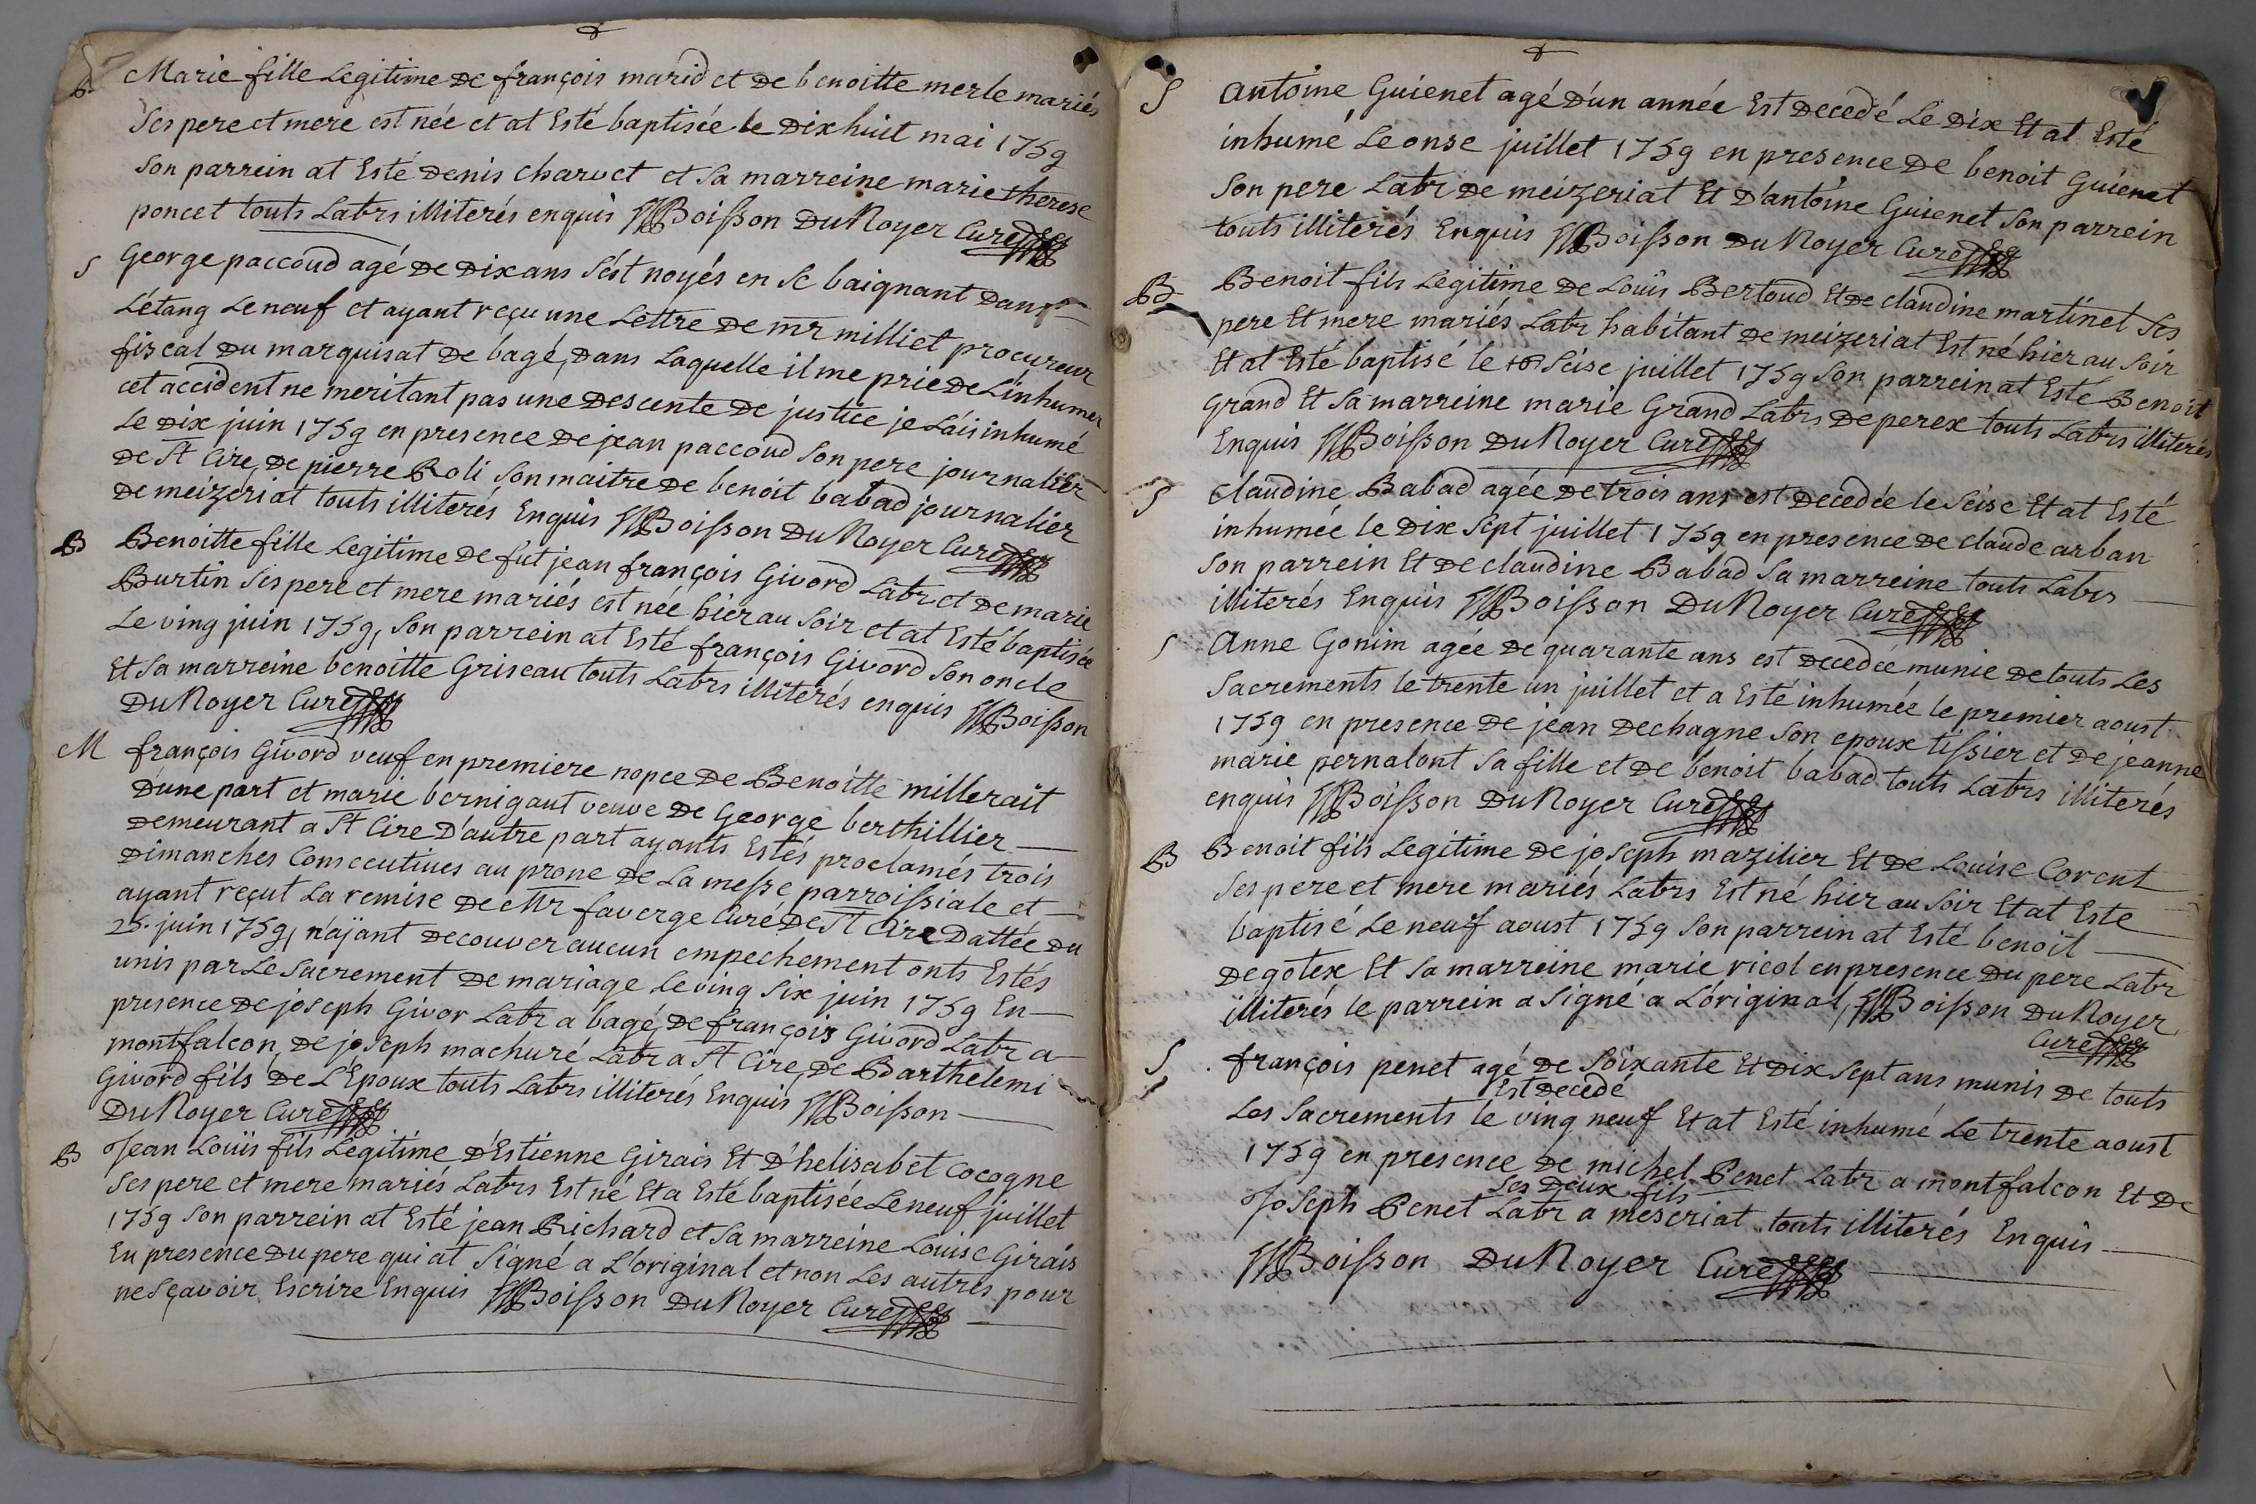 B Marie fille Legitime De françois marid et De benoitte merle mariés
Ses pere et mere est née et at Esté baptisée le Dix huit mai 1759
Son parrein at Esté Denis charvet et Sa marreine marie therese
poncet touts Labrs illiterés enquis Boisson DuNoyer Curé
S George paccoud agé De Dix ans s'est noyés en Se baignant Dans
L'étang Le neuf et ayant reçu une Lettre De mr milliet procureur
fiscal Du marquisat De bagé, Dans Laquelle il me prie De L'inhumer
cet accident ne meritant pas une Descente De justice je L'ais inhumé
Le Dix juin 1759 en presence De jean paccoud Son pere journalier
De St Cire, De pierre Roli Son maitre De benoit babad journalier
De meizeriat touts illiterés Enquis Boisson DuNoyer Curé
B Benoitte fille Legitime De fut jean françois Givord Labr et De marie
Burtin Ses pere et mere mariés est née hier au Soir et at Esté baptisée
Le ving juin 1759, Son parrein at Esté françois Givord Son oncle
Et Sa marreine benoitte Griseau touts Labrs illiterés enquis Boisson
DuNoyer Curé
M françois Givord veuf en premiere nopce De Benoitte millerait
D'une part et marie bernigaut veuve De George berthillier
Demeurant a St Cire D'autre part ayants Estés proclamés trois
Dimanches Consecutives au prone De La messe parroissiale et
ayant reçut La remise De Mr faverge Curé De St Cire Dattée Du
25. juin 1759, n'ajant Decouver aucun empechement onts Estés
unis par Le Sacrement De mariage Le ving Six juin 1759 En
presence De joseph Givor Labr a bagé, De françois Givord Labr a
montfalcon, De joseph machuré Labr a St Cire, De Barthelemi
Givord fils De L'Epoux touts Labrs illiterés Enquis Boisson
DuNoyer Curé
B Jean Loüis fils Legitime D'Estienne Girais Et D'helisabet Cocogne
Ses pere et mere mariés Labrs Est né Et a Esté baptisée Le neuf juillet
1759 Son parrein at Esté jean Richard et Sa marreine Louise Girais
En presence Du pere qui at Signé a L'original et non Les autres pour
ne Sçavoir Escrire Enquis Boisson DuNoyer Curé
S Antoine Guienet agé D'un année Est Decedé Le Dix Et at Esté
inhumé Le onse juillet 1759 en presence De benoit Guienet
Son pere Labr De meizeriat Et D'antoine Guienet Son parrein
touts illiterés Enquis Boisson Du Noyer Curé
B Benoit fils Legitime De Loüis Bertoud Et De claudine martinet Ses
pere Et mere mariés Labr habitant De meizeriat Est né hier au Soir
Et at Esté baptisé le Seise juillet 1759 Son parrein at Esté Benoit
Grand Et Sa marreine marie Grand Labrs De perex touts Labrs illiterés
Enquis Boisson DuNoyer Curé
S Claudine Babad agée De trois ans est Decedée le Seise Et at Esté
inhumée le Dix Sept juillet 1759 en presence De claude arban
Son parrein Et De claudine Babad Sa marreine touts Labrs
illiterés Enquis Boisson DuNoyer Curé
S Anne Gonim agée De quarante ans est Decedée munie De touts Les
Sacrements le trente un juillet et a Esté inhumée le premier aoust
1759 en presence De jean Dechagne Son epoux tissier et De jeanne
marie pernalont Sa fille et De benoit babad touts Labrs illiterés
enquis Boisson DuNoyer Curé
B Benoit fils Legitime De joseph mazilier Et De Louise Corent
Ses pere et mere mariés Labrs Est né hier au Soir Et at Este
baptisé Le neuf aoust 1759 Son parrein at Esté benoit
Degotex Et Sa marreine marie ricol en presence Du pere Labr
illiterés le parrein a Signé a L'original, Boisson DuNoyer
Curé
S françois penet agé De Soixante Et Dix Sept ans munis De touts
Est Decedé
Les Sacrements le ving neuf Et at Esté inhumé Le trente aoust
1759 en presence De michel Penet Labr a montfalcon Et De
Ses Deux fils
Joseph Penet Labr a meseriat touts illiterés Enquis
Boisson DuNoyer Curé